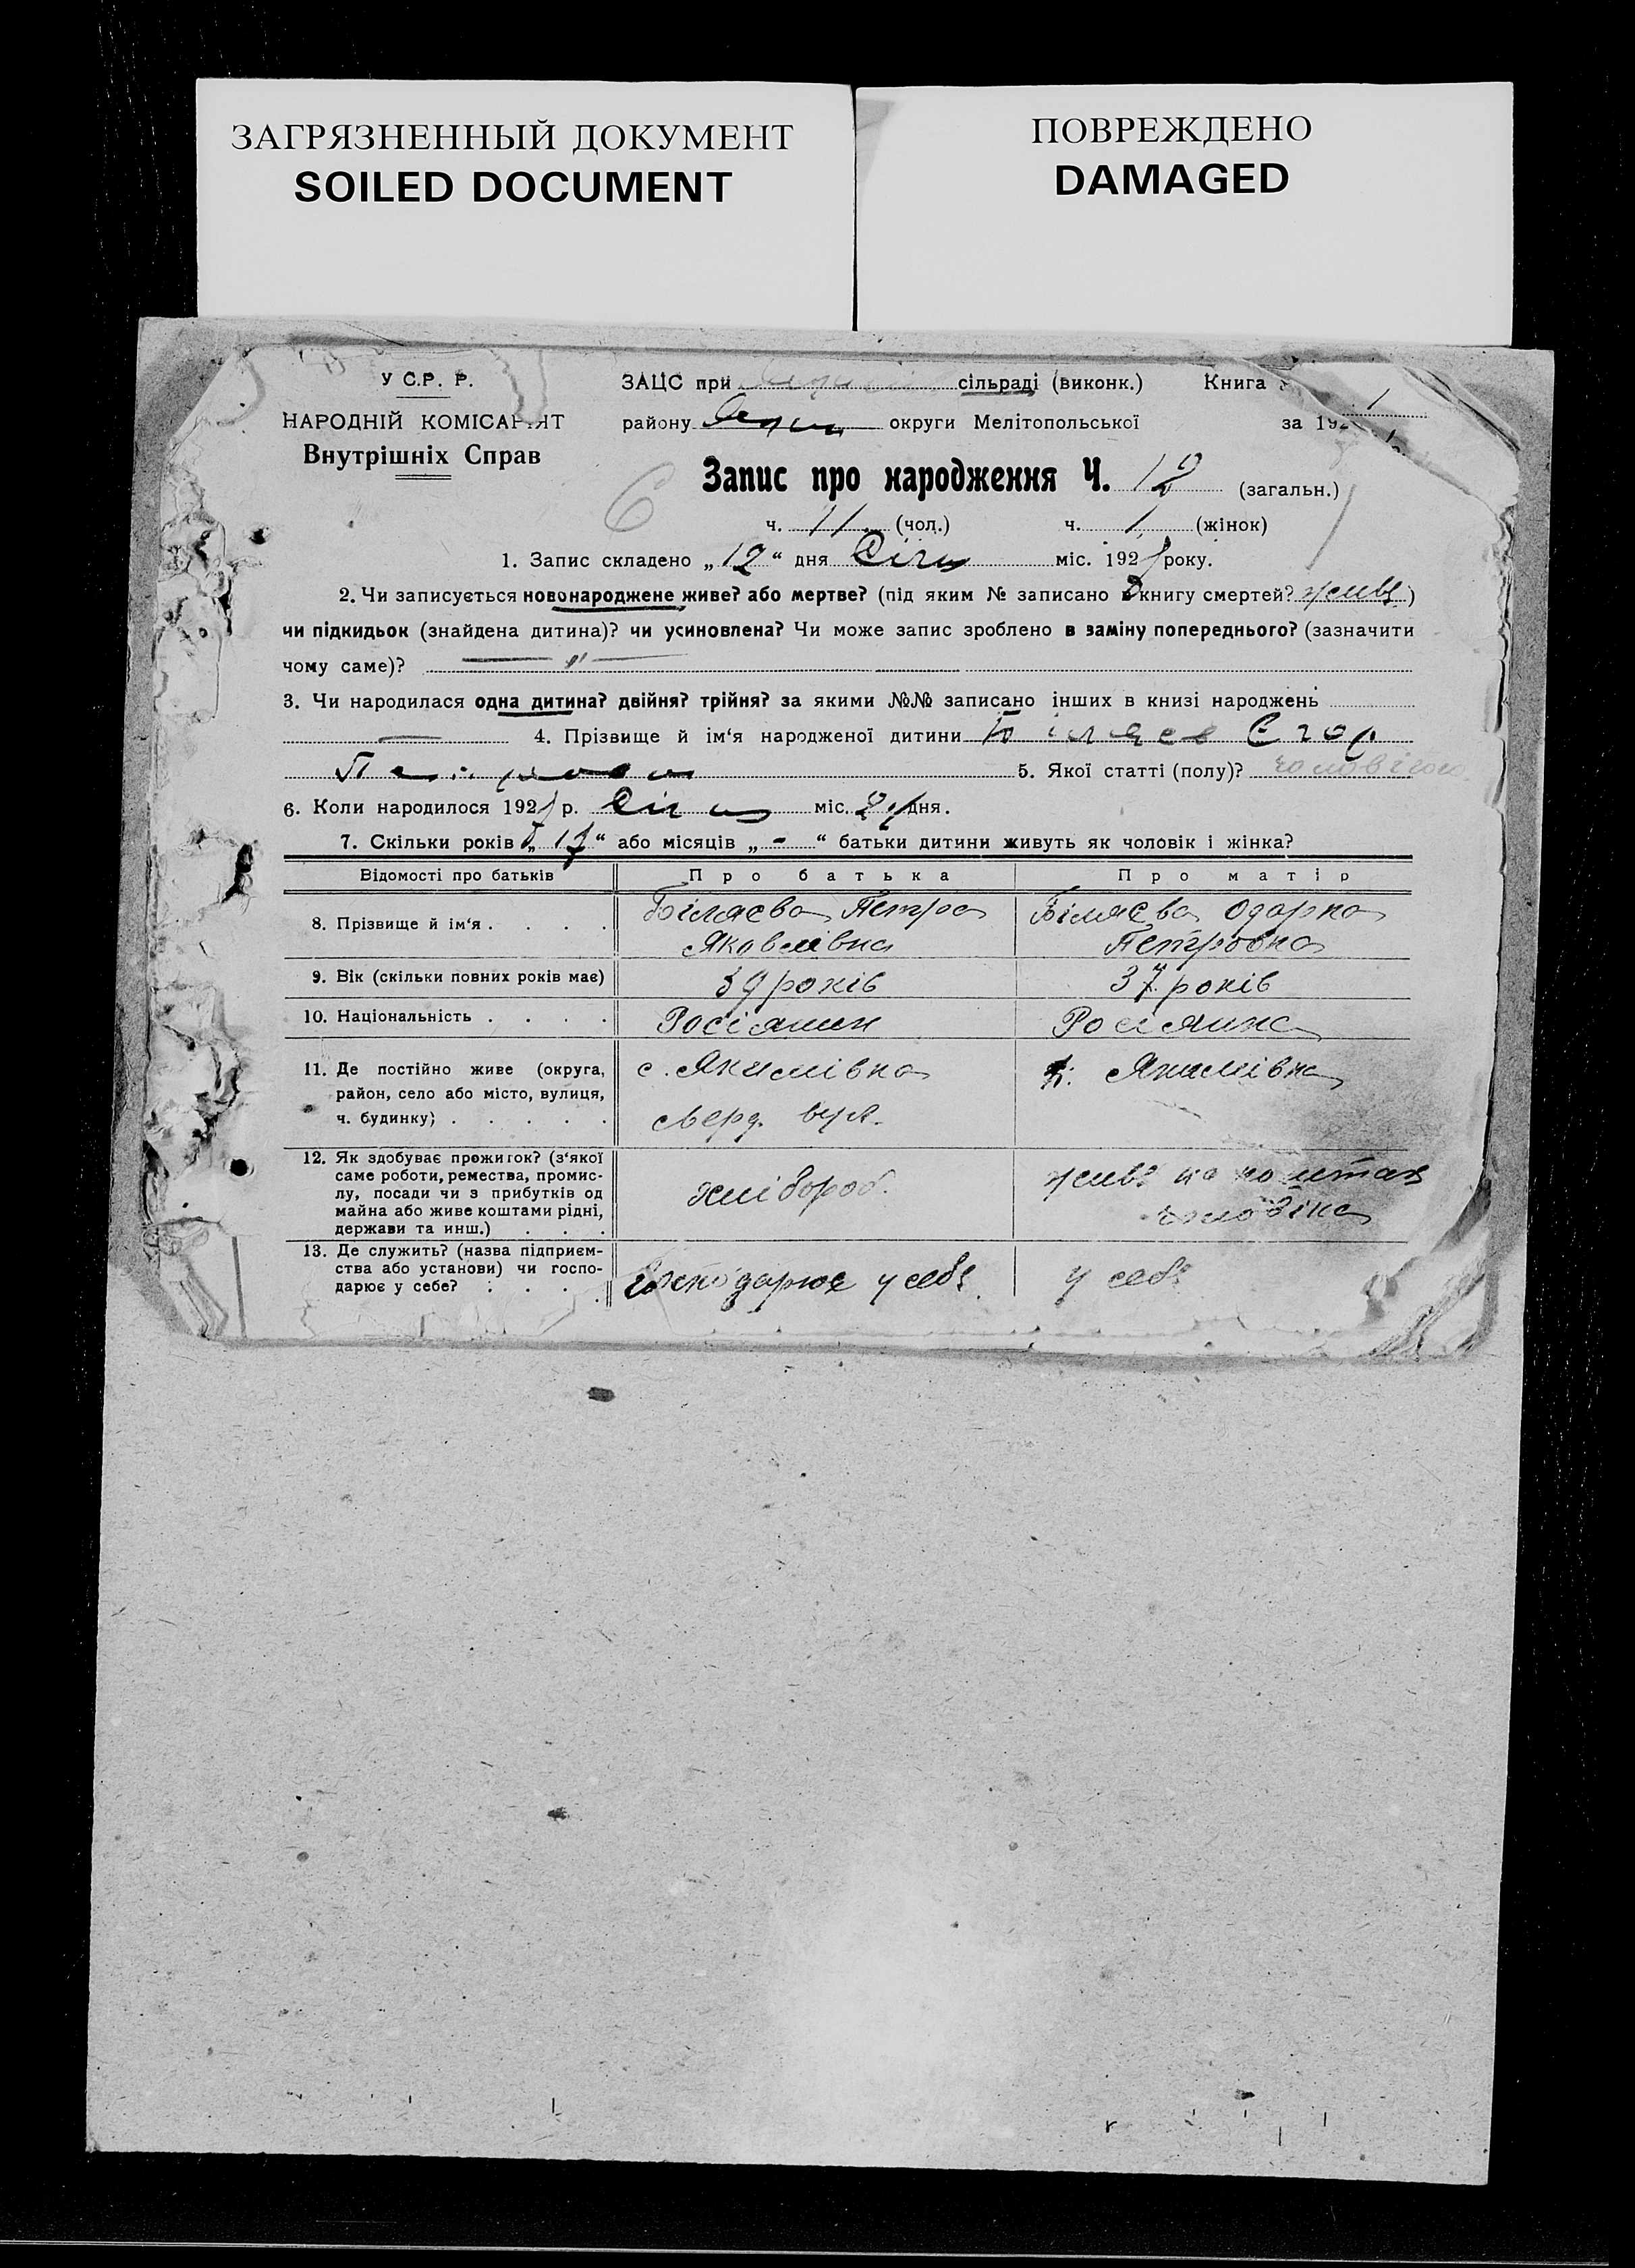 ЗАГРЯЗНЕННЫЙ ДОКУМЕНТ
SOILED DOCUMENT
ПОВРЕЖДЕНО
DAMAGED
У С.Р. Р.
НАРОДНІЙ КОМІСАРІЯТ
Внутрішніх Справ
ЗАЦС при сільраді (виконк.) Книга
району округи Мелітопольської за 192
1
Запис про народження Ч. 12 (загальн.)
6
ч. 11 (чол.) ч. 1 (жінок)
1. Запис складено „12“ дня Січня міс. 192 року.
2. Чи записується новонароджене живе? або мертве? (під яким № записано в книгу смертей? живе)
чи підкидьок (знайдена дитина)? чи усиновлена? Чи може запис зроблено в заміну попереднього? (зазначити
чому саме)? — „ —
3. Чи народилася одна дитина? двійня? трійня? за якими №№ записано інших в книзі народжень
— 4. Прізвище й ім‘я народженої дитини Біляєв Єгор
Петрович 5. Якої статті (полу)? чоловічої
6. Коли народилося 192 р. Січня міс. дня.
7. Скільки років „17“ або місяців „-“ батьки дитини живуть як чоловік і жінка?
Відомості про батьків Про батька Про матір
8. Прізвище й ім‘я . . . . Біляєва Петра Біляєва Одарка
Яковлівна Петровна
9. Вік (скільки повних років має) 39 років 37 років
10. Національність . . . . Росіянин Росіянка
11. Де постійно живе (округа, с. Якимівка Якимівка
район, село або місто, вулиця,
ч. будинку) . . . . . вул.
12. Як здобуває прожиток? (з‘якої
саме роботи, ремества, промис-
лу, посади чи з прибутків од хлібороб. живе на коштах
майна або живе коштами рідні, чоловіка
держави та инш.) . . .
13. Де служить? (назва підприєм-
ства або установи) чи госпо- Господарює у себе у себе
дарює у себе? . . . .